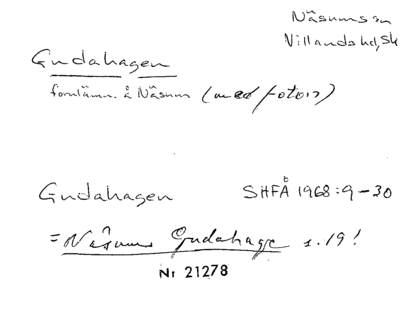 Näsums sn
Villands hd, Sk
Gudahagen
fornlämn. å Näsum (med foton)
Gudahagen SHFÅ 1968:9-30
= Näsums Gudahage s. 19!
Nr 21278